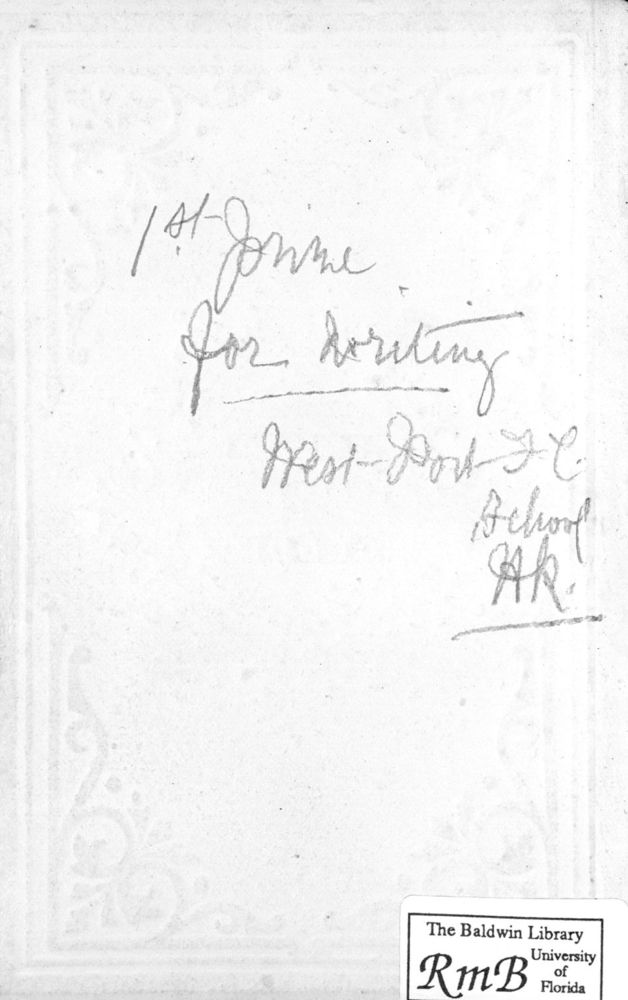 1st Prize
for Writing
West-Port F C
School
The Baldwin Library
RmB University
of
Florida